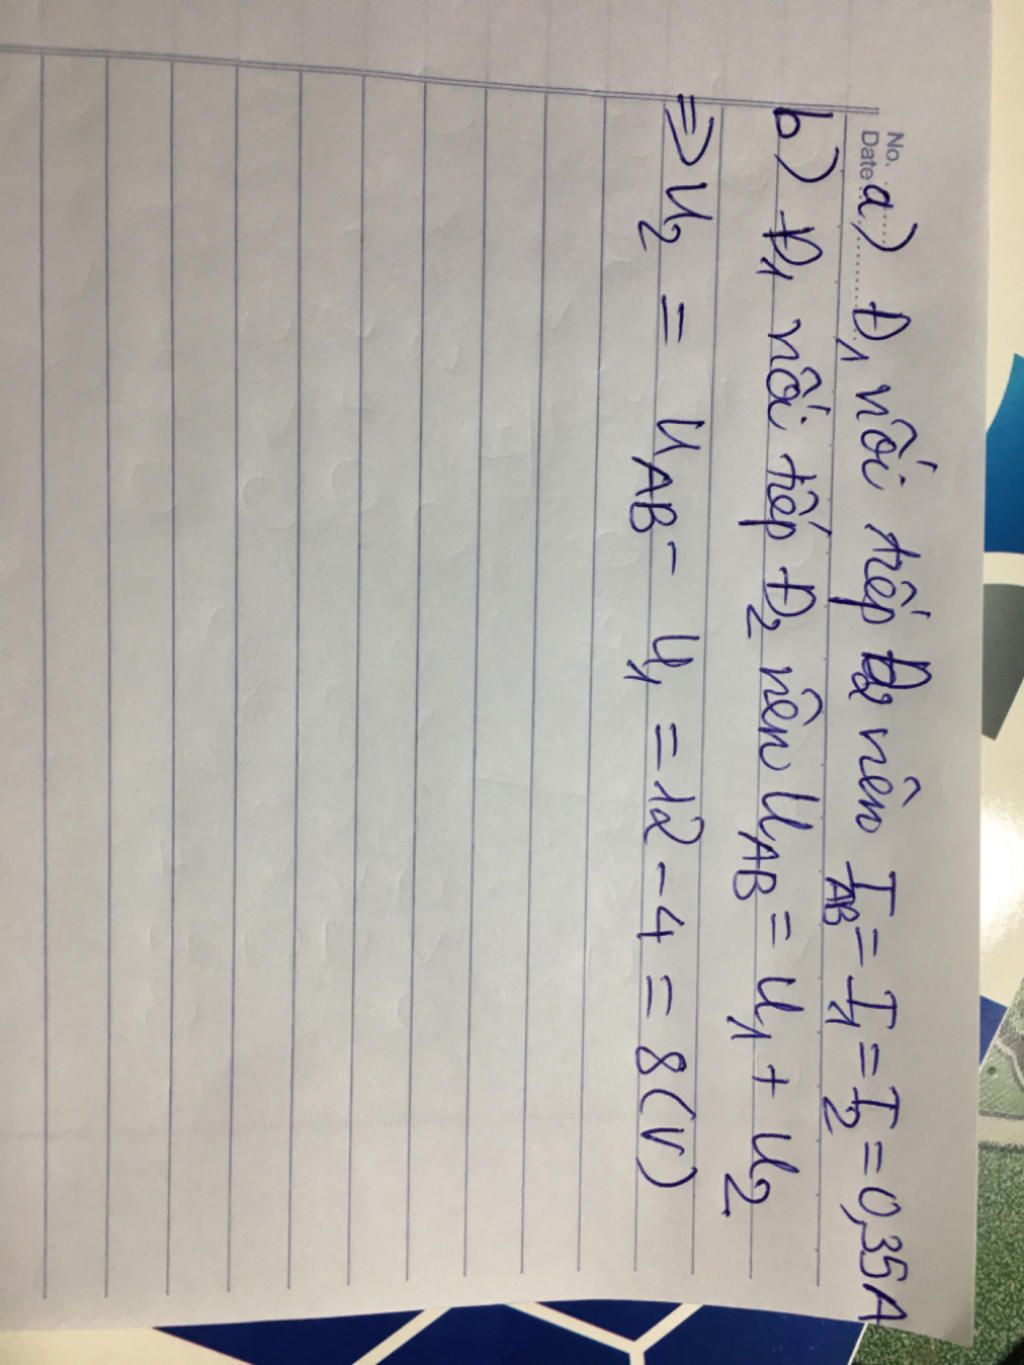 No.
Date
a) Đ₁ nối tiếp Đ₂ nên I_AB = I₁ = I₂ = 0,35A
b) Đ₁ nối tiếp Đ₂ nên U_AB = U₁ + U₂
=> U₂ = U_AB - U₁ = 12 - 4 = 8(V)